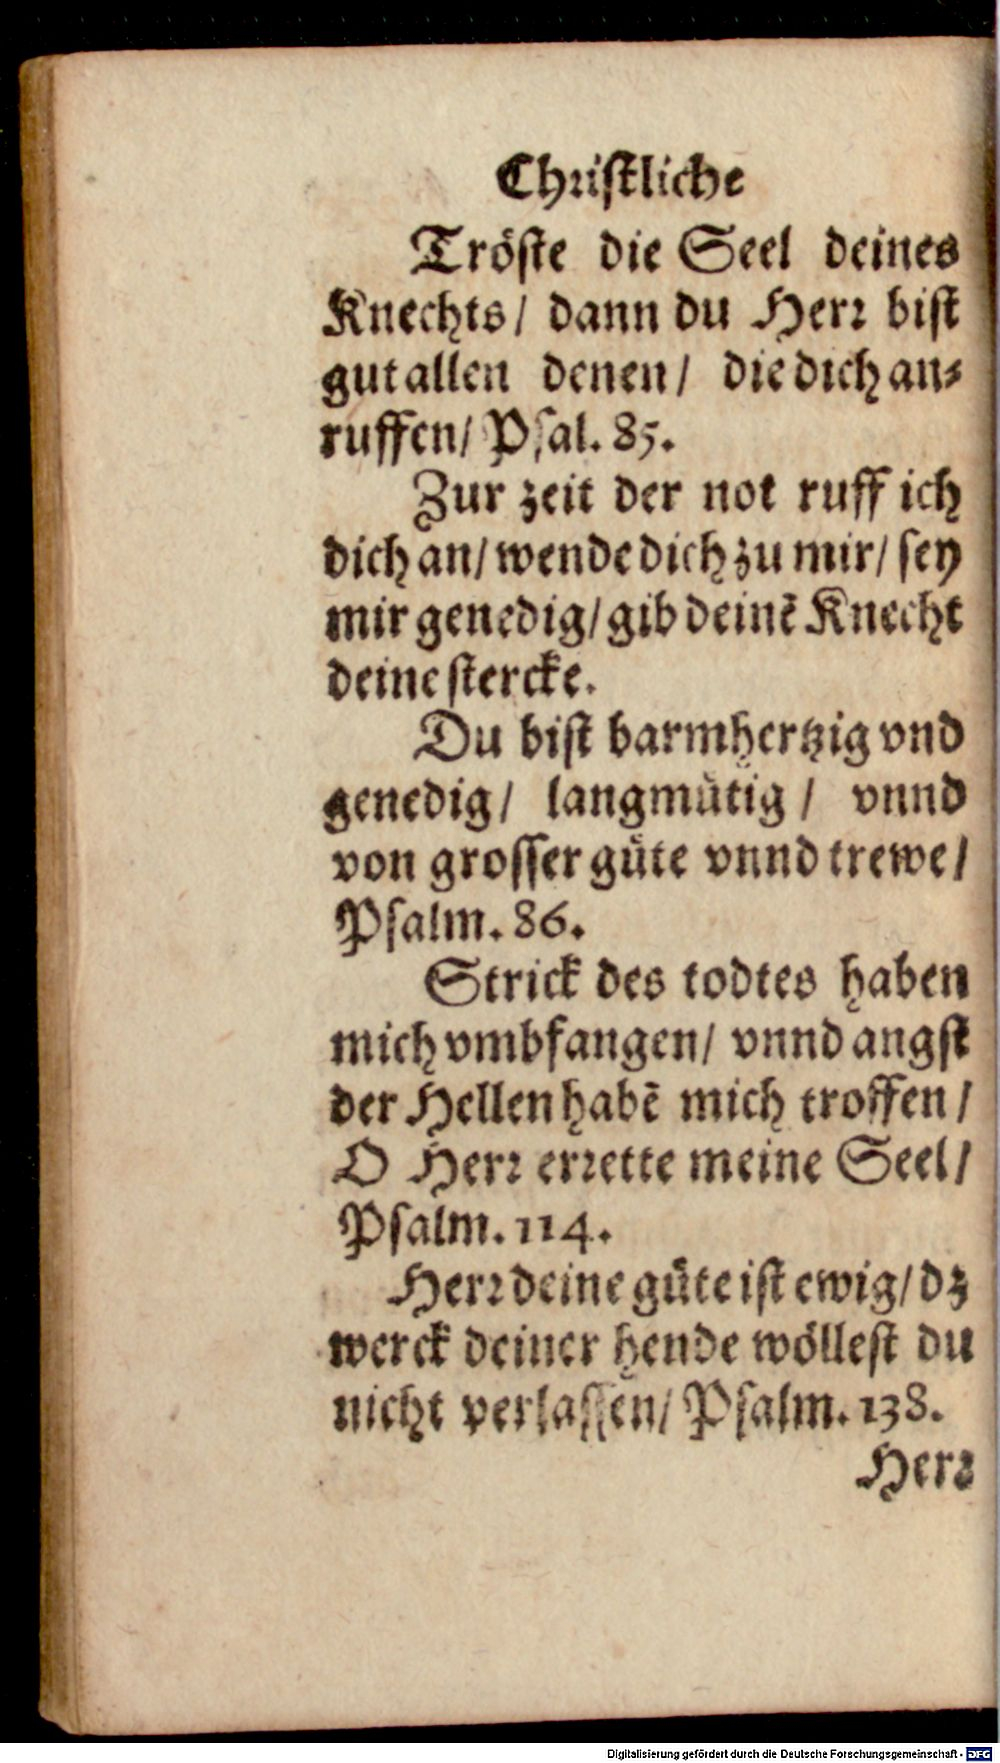 Chꝛiſtliche
Tröſte die Seel deines
Knechts/ dann du Herꝛ biſt
gut allen denen/ die dich an⸗
ruffen/ Pſal. 85.
Zur zeit der not ruff ich
dich an/ wende dich zu mir/ ſey
mir genedig/ gib deinẽ Knecht
deine ſtercke.
Du biſt barmhertzig vnd
genedig/ langmütig/ vnnd
von groſſer güte vnnd trewe/
Pſalm. 86.
Strick des todtes haben
mich vmbfangen/ vnnd angſt
der Hellen habẽ mich troffen/
O Herꝛ erꝛette meine Seel/
Pſalm. 114.
Herꝛ deine güte iſt ewig/ dz
werck deiner hende wölleſt du
nicht verlaſſen/ Pſalm. 138.
Herꝛ
Digitalisierung gefördert durch die Deutsche Forschungsgemeinschaft - DFG